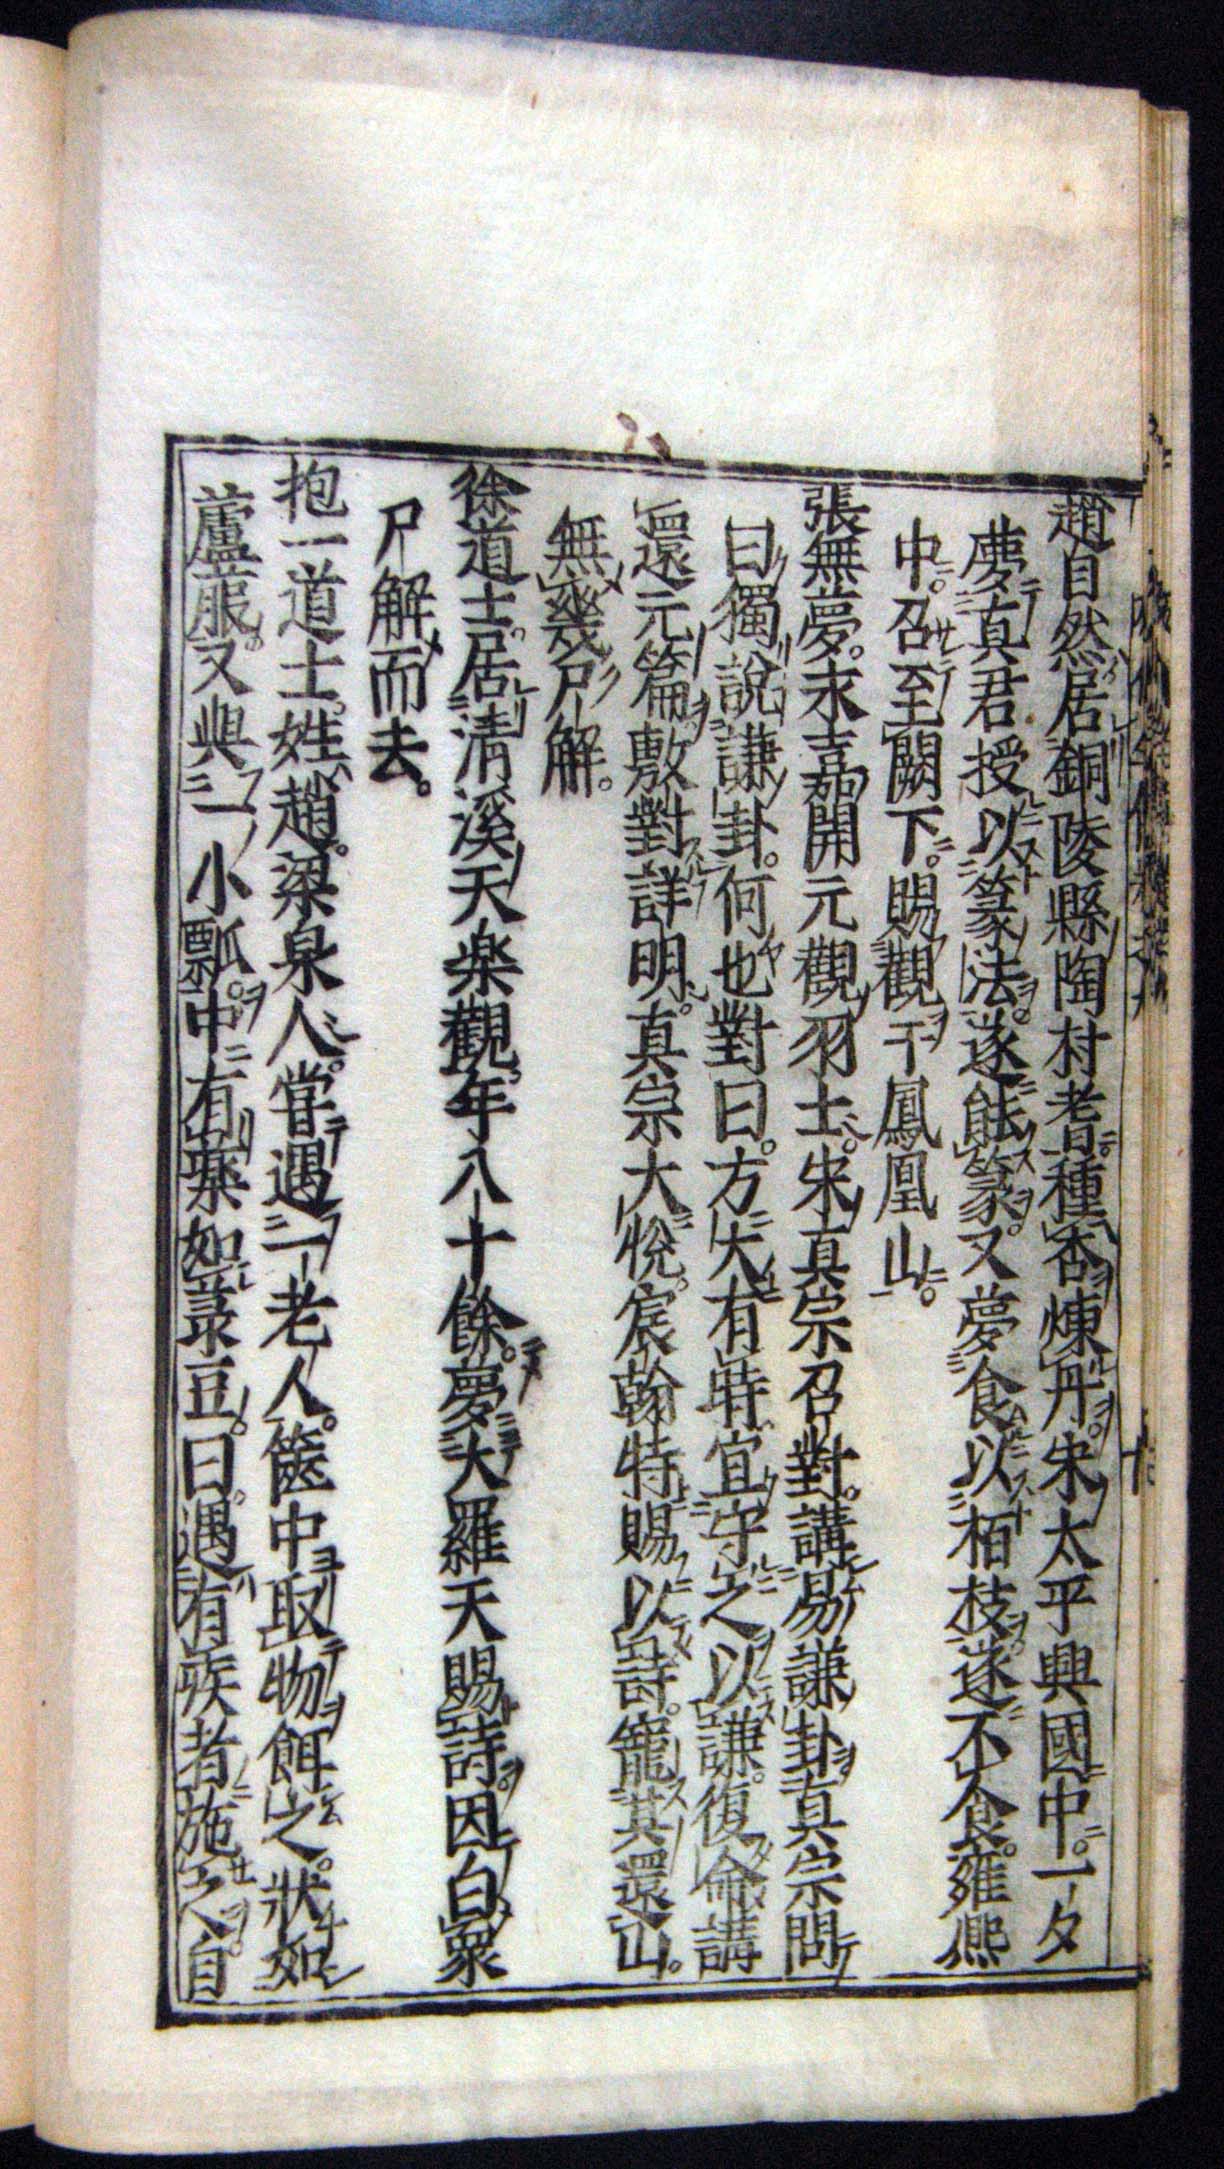 趙自然居銅陵縣陶村者種杏煉丹。宋太平興國中。一夕
夢真君授以篆法。遂能篆。又夢食以栢枝。遂不食。雍熙
中。召至闕下。賜觀于鳳凰山。
張無夢。永嘉開元觀羽士。宋真宗召對。講易謙卦。真宗問
曰獨說謙卦。何也對曰。方大有時宜守之以謙。復命講
還元篇敷對詳明。真宗大悅。宸翰特賜以詩。寵其還山。
無幾尸解。
徐道士。居清溪天楽觀。年八十餘。夢大羅天賜詩。因白衆
尸解而去。
抱一道士。姓趙。梁泉人。甞遇一老人。篋中取物餌之。狀如
蘆服。又與一小瓢。中有藥如菉豆。曰。遇有疾者施之。自